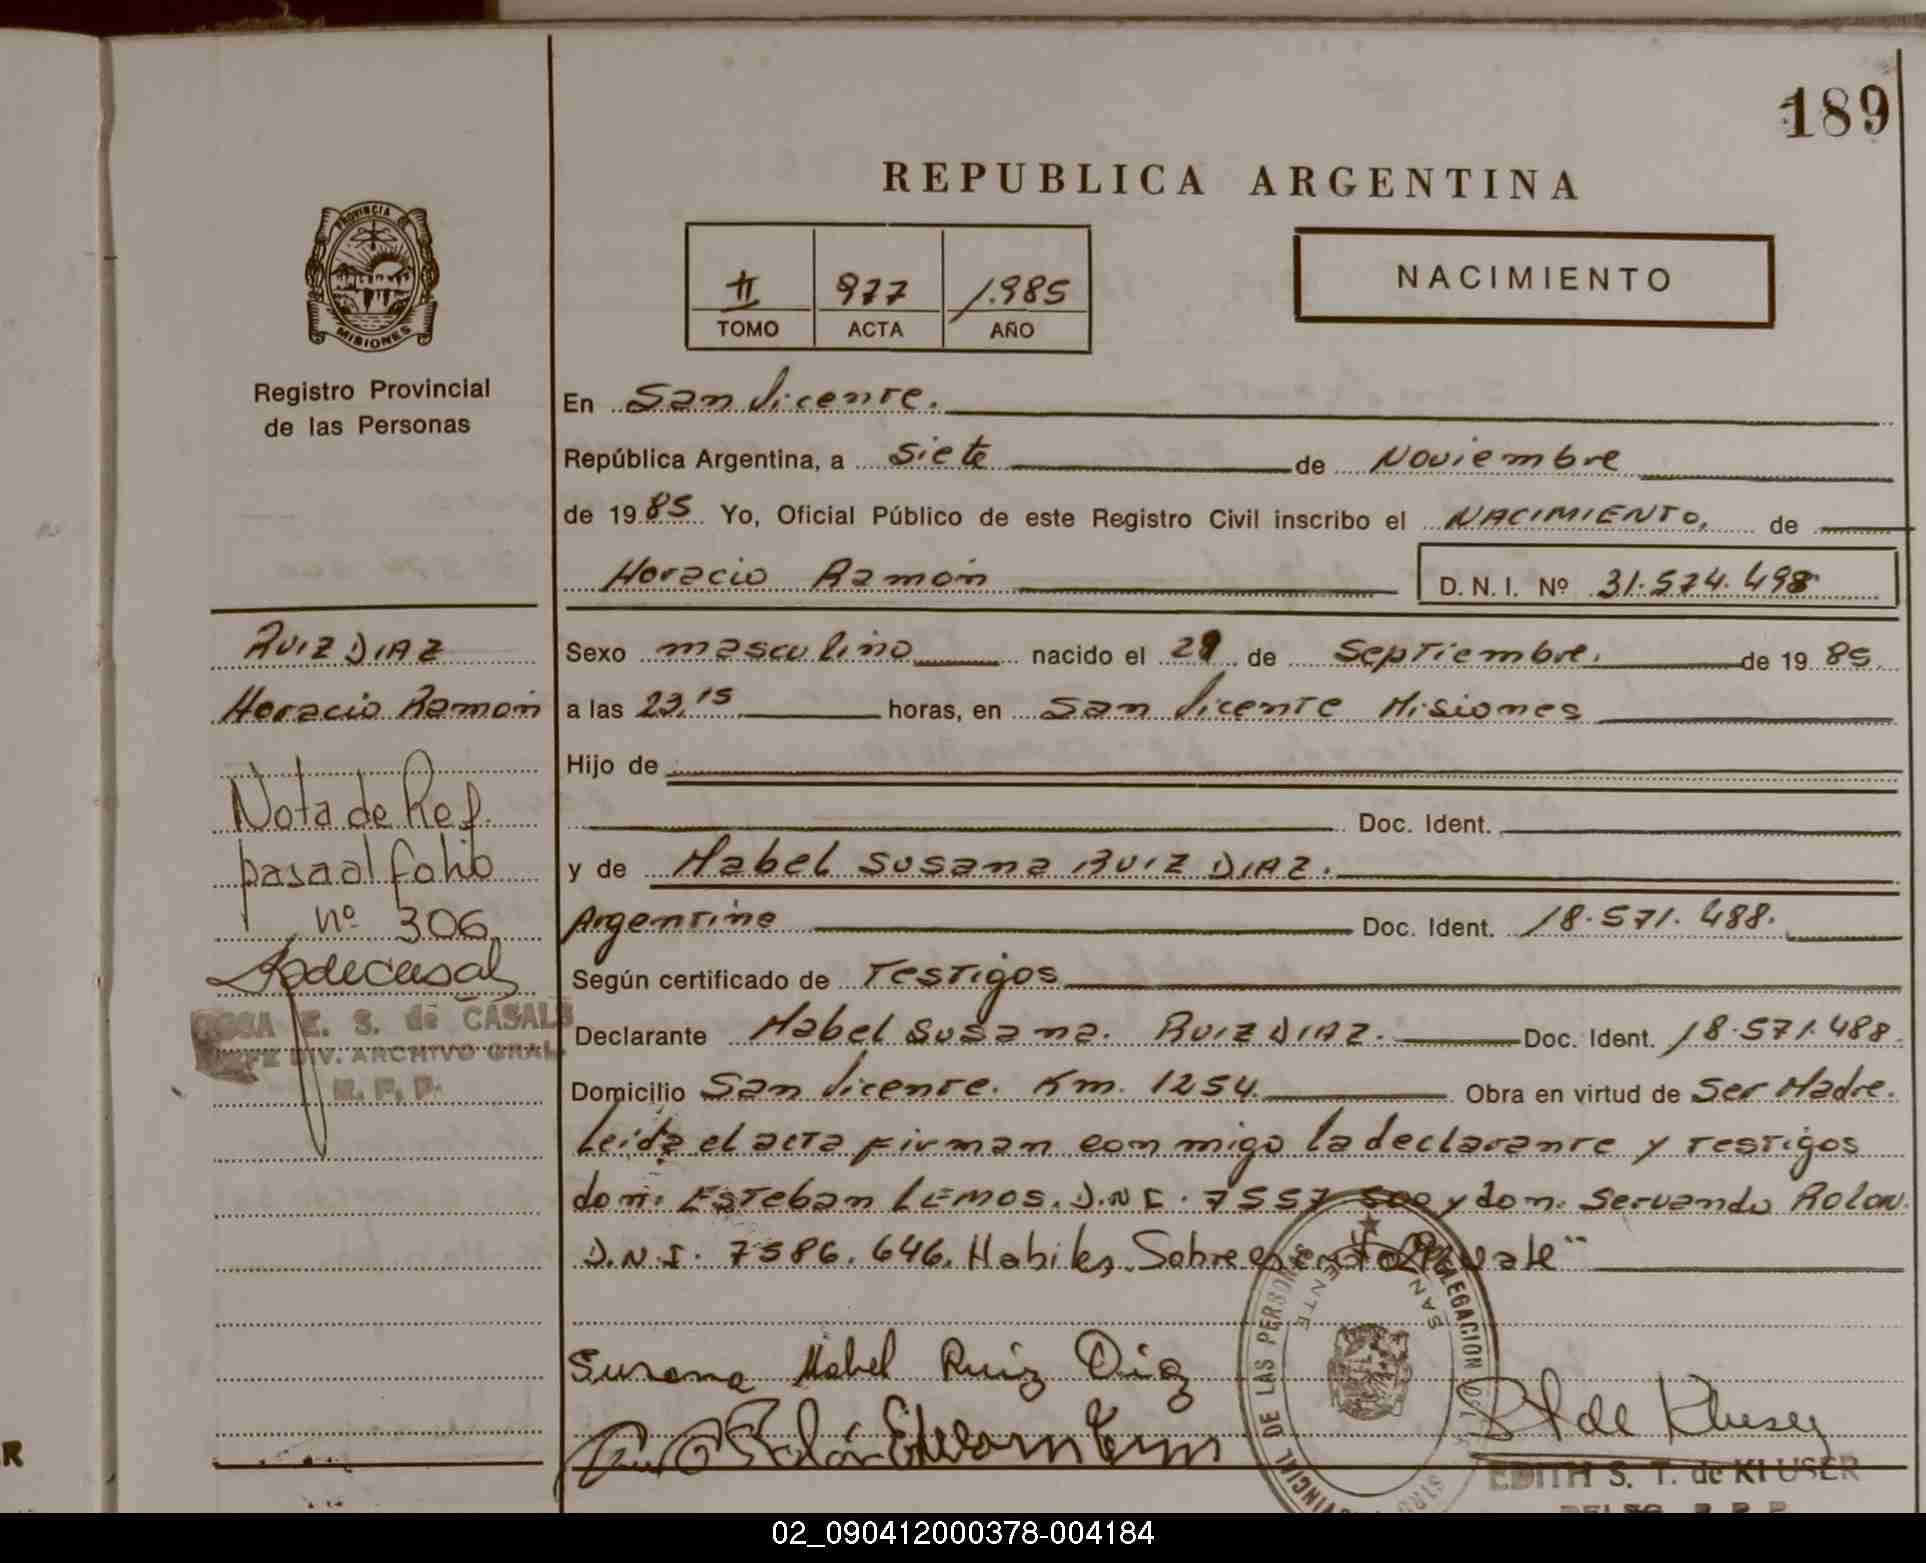 189
REPUBLICA ARGENTINA
PROVINCIA DE
MISIONES
Registro Provincial
de las Personas
II 977 1.985
TOMO ACTA AÑO
NACIMIENTO
En San Vicente.
República Argentina, a siete de Noviembre
de 1985 Yo, Oficial Público de este Registro Civil inscribo el NACIMIENTO, de
Horacio Ramón D. N. I. Nº 31.574.498
RUIZ DIAZ
Horacio Ramón
Nota de Ref.
pasa al folio
nº 306
ROSA E. S. de CASALS
JEFE DIV. ARCHIVO GRAL.
R. P. P.
Sexo masculino nacido el 29 de Septiembre. de 1985
a las 23,15 horas, en San Vicente Misiones
Hijo de
Doc. Ident.
y de Mabel Susana RUIZ DIAZ.
Argentina Doc. Ident. 18.571.488.
Según certificado de Testigos
Declarante Mabel Susana. RUIZ DIAZ. Doc. Ident. 18.571.488
Domicilio San Vicente. Km. 1254. Obra en virtud de Ser Madre.
Leida el acta firman conmigo la declarante y testigos
don: Esteban LEMOS. D.N.I. 7557 500 y don: Servando ROLON.
D.N.I. 7586.646. Habiles, Sobre
Susana Mabel Ruiz Diaz
DELEGACION
SAN VICENTE
PROVINCIAL DE LAS PERSONAS
S T de Kluser
EDITH S. T. de KLUSER
R
02_090412000378-004184